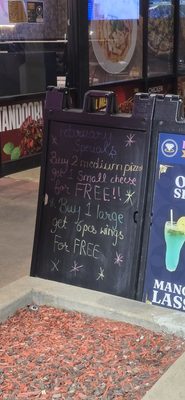 TANDOORI
February
Specials
Buy 2 medium pizza
get 1 Small cheese
for FREE!!
Buy 1 large
get 6 pcs wings
For FREE
MANGO
LASS